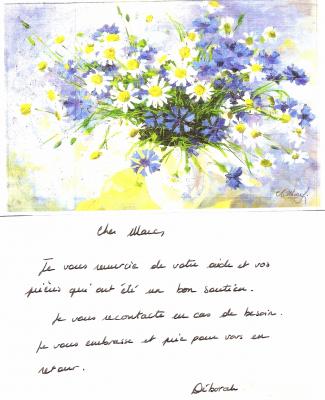 Cher Marcs
Je vous remercie de votre aide et vos
prières qui ont été un bon soutien.
Je vous recontacte en cas de besoin.
Je vous embrasse et prie pour vous en
retour.
Déborah